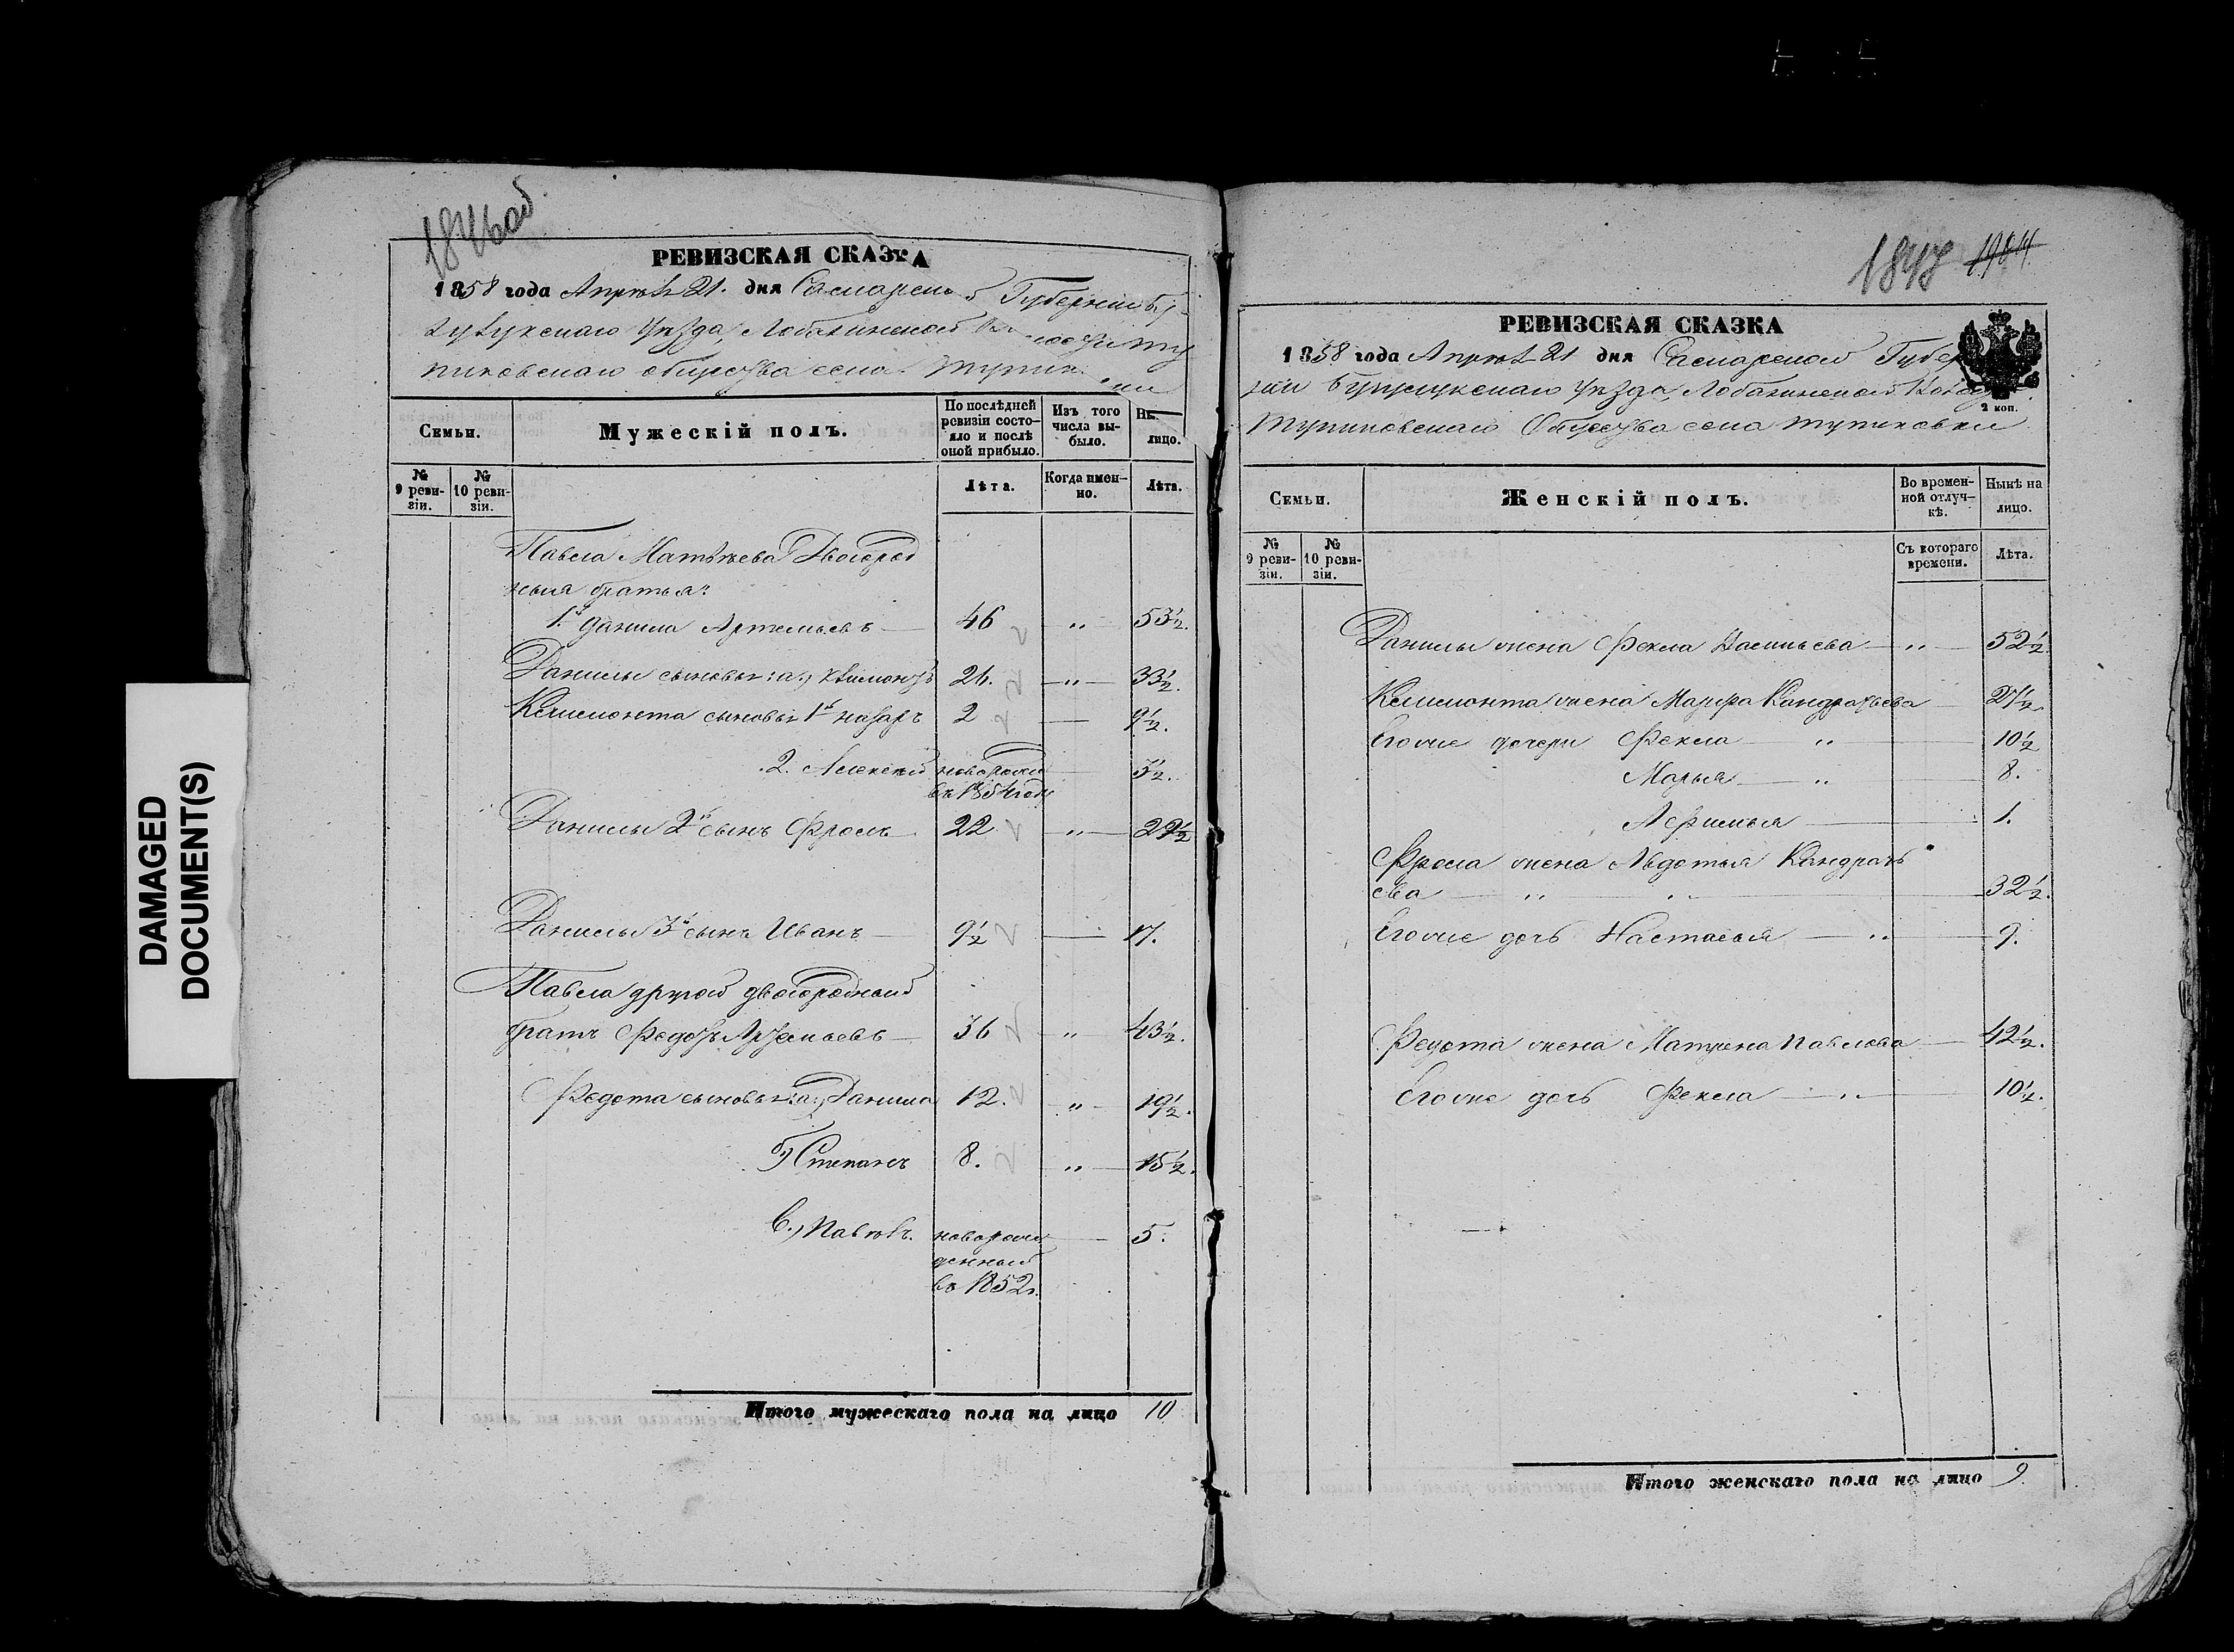 DAMAGED
DOCUMENT(S)
1846 об.
РЕВИЗСКАЯ СКАЗКА
1858 года Апреля 21. дня Самарской Губернии Бу-
зулукскаго Уѣзда, Лобазинской Волости Ту
пиковскаго общества села
Семьи.
Мужескій полъ.
По послѣдней ревизіи состояло и послѣ оной прибыло.
Изъ того числа выбыло.
лицо.
№ 9 ревизіи.
№ 10 ревизіи.
Лѣта.
Когда именно.
Лѣта.
Павла Матвѣева Двоюрод
ныя братья:
1й Данила Артемьевъ 46 " 53½.
Данилы сыновья: а) 26. " 33½.
сыновья 1й Назаръ 2 9½.
2. Алексей новорожд 3½.
въ 1854 годе
Данилы 2й сынъ Фролъ 22 " 29½
Данилы 3й сынъ Иванъ 9½ 17.
Павла другой двоюродный
братъ Федотъ Артемьевъ 36 " 43½.
Федота сыновья: а) Данила 12. " 19½.
б) Степанъ 8. " 15½.
в.) Павелъ. новорож 5.
денный
въ 1852г.
Итого мужескаго пола на лицо 10
1847 1904.
РЕВИЗСКАЯ СКАЗКА
1858 года Апреля 21 дня Самарской Губер
нии Бузулукскаго Уѣзда, Лобазинской
2 коп.
Тупиковскаго Общества села Тупиковки
Семьи.
Женскій полъ.
Во временной отлучкѣ.
Нынѣ на лицо.
№ 9 ревизіи.
№ 10 ревизіи.
Съ котораго времени.
Лѣта.
Данилы жена Фекла Васильева " 52½.
жена Мавра Кандратьева 27½.
Егоже дочери Фекла " 10½
Марья " 8.
Афимья 1.
Фрола жена Авдотья Кандрать
ева " 32½.
Егоже дочь Настасья " 9.
Федота жена Матрена Павлова 42½.
Егоже дочь Фекла " 10½.
Итого женскаго пола на лицо 9